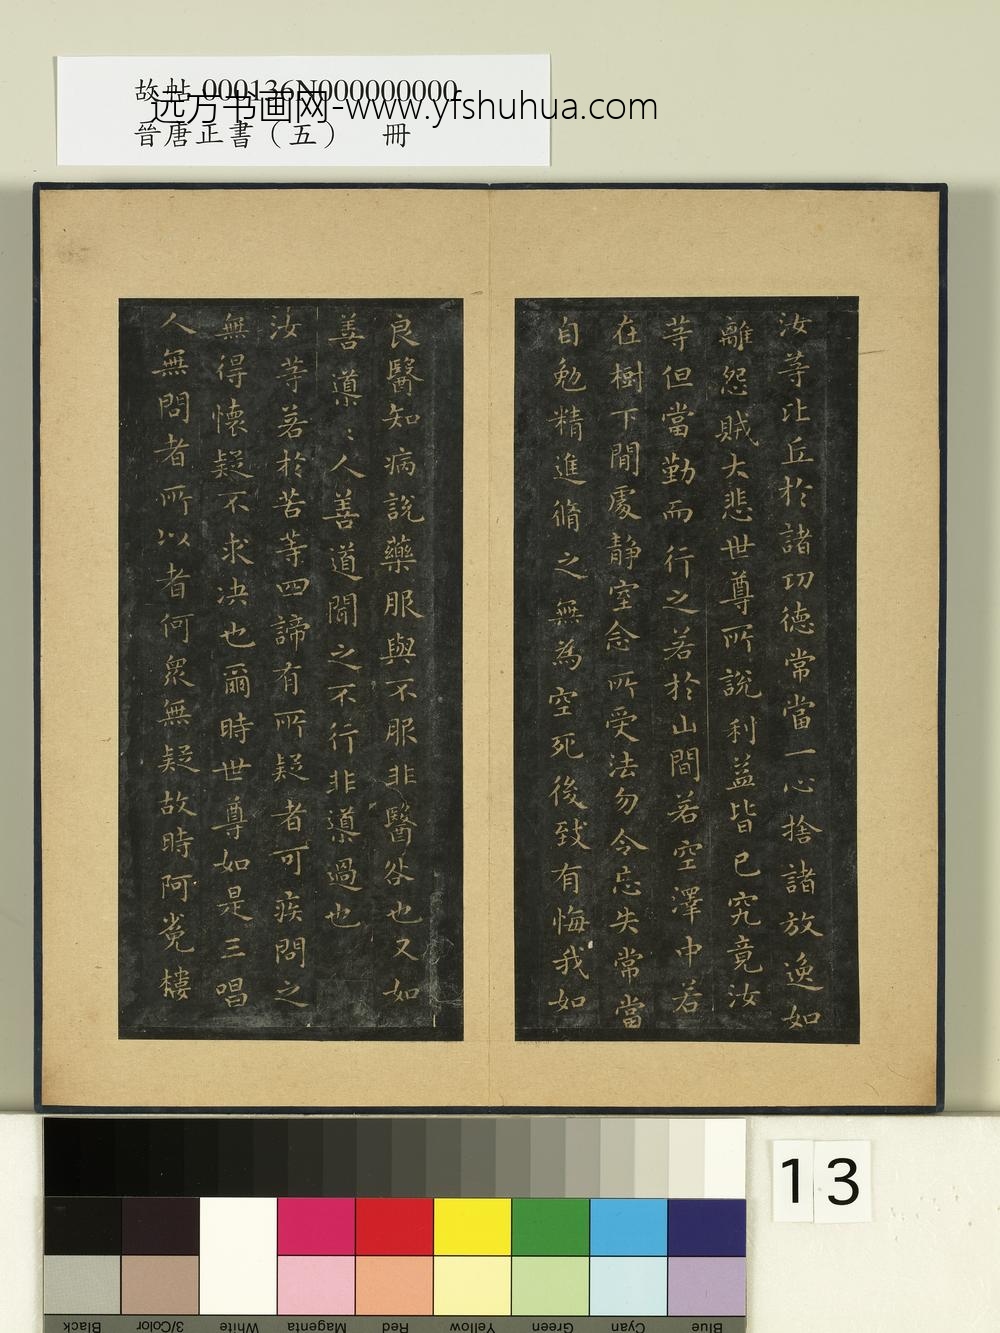 故帖 000136N000000000
远方书画网-www.yfshuhua.com
晉唐正書（五） 冊
汝等比丘於諸功德常當一心捨諸放逸如
離怨賊大悲世尊所說利益皆已究竟汝
等但當勤而行之若於山間若空澤中若
在樹下閒處靜室念所受法勿令忘失常當
自勉精進脩之無為空死後致有悔我如
良醫知病說藥服與不服非醫咎也又如
善導：人善道聞之不行非導過也
汝等若於苦等四諦有所疑者可疾問之
無得懷疑不求決也爾時世尊如是三唱
人無問者所以者何眾無疑故時阿㝹樓
13
Black
3/Color
White
Magenta
Red
Yellow
Green
Cyan
Blue